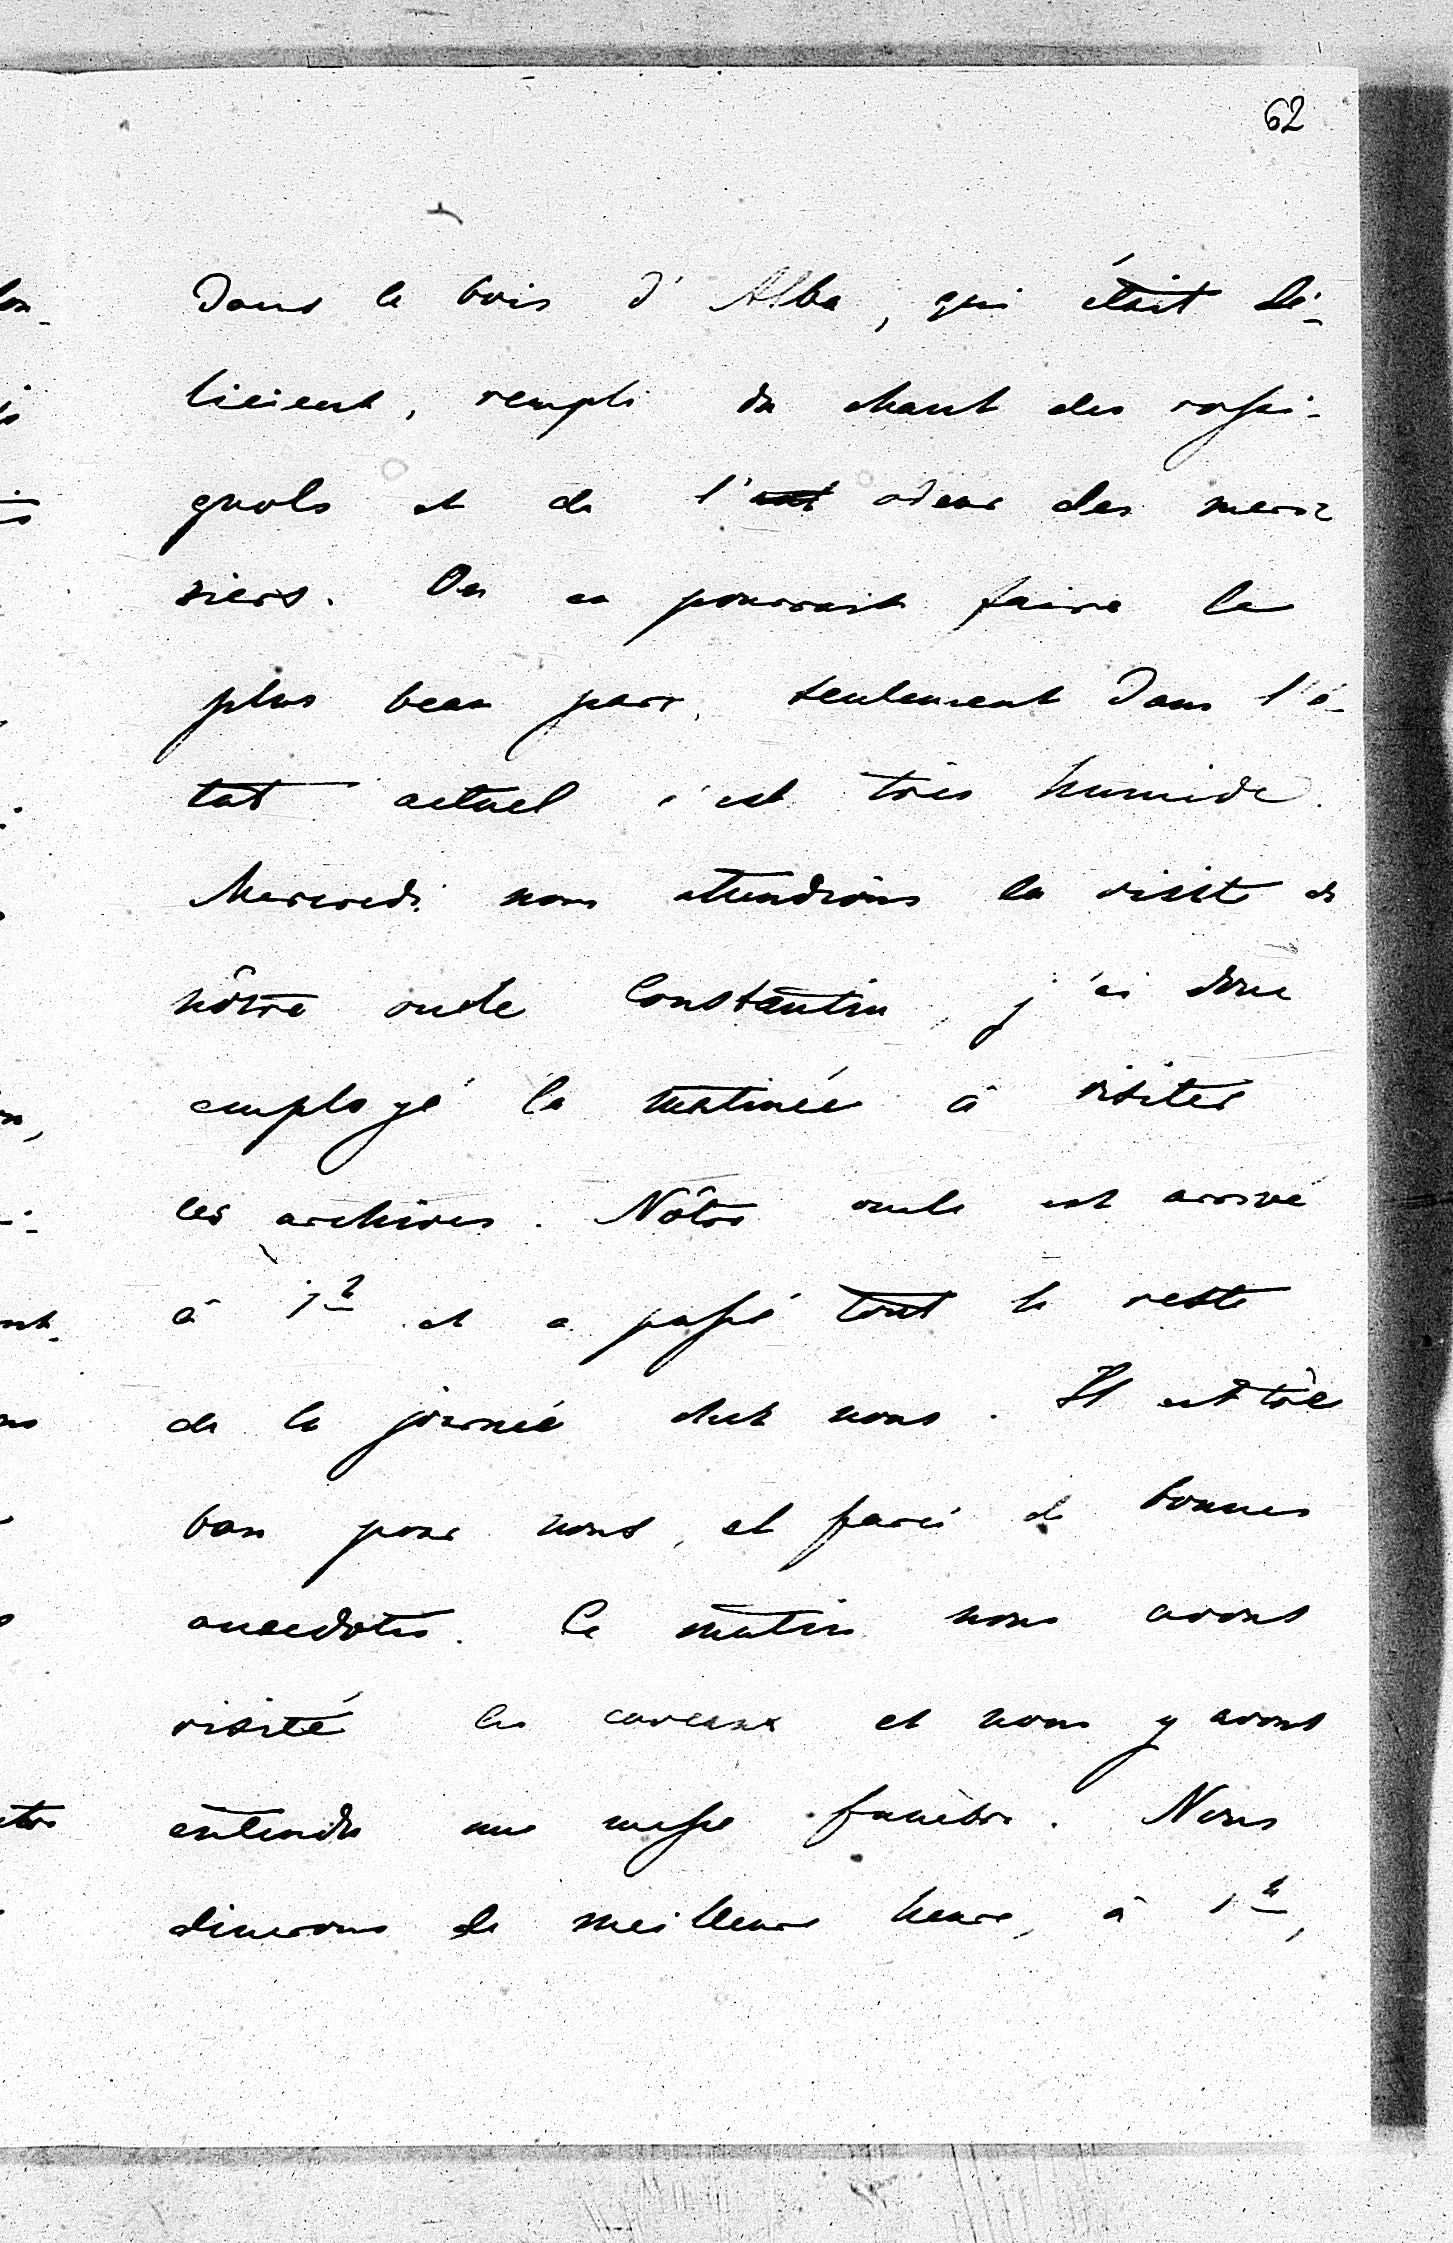 62
Dans le bois d'Alba, qui était dé-
licieux, rempli du chant des rossi-
gnols et de l' odeur des meri-
siers. On en pourrait faire le
plus beau parc, seulement dans l'é-
tat actuel c'est très humide.
Mercredi nous attendions la visite de
nôtre oncle Constantin, j'ai donc
employé la matinée à visiter
les archives. Nôtre oncle est arrivé
à 1h et a passé tout le reste
de la journée chez nous. Il est très
bon pour nous, et farci de bonnes
anecdotes. Ce matin nous avons
visité les caveaux et nous y avons
entendu une messe funèbre. Nous
dinerons de meilleure heure, à 1h,